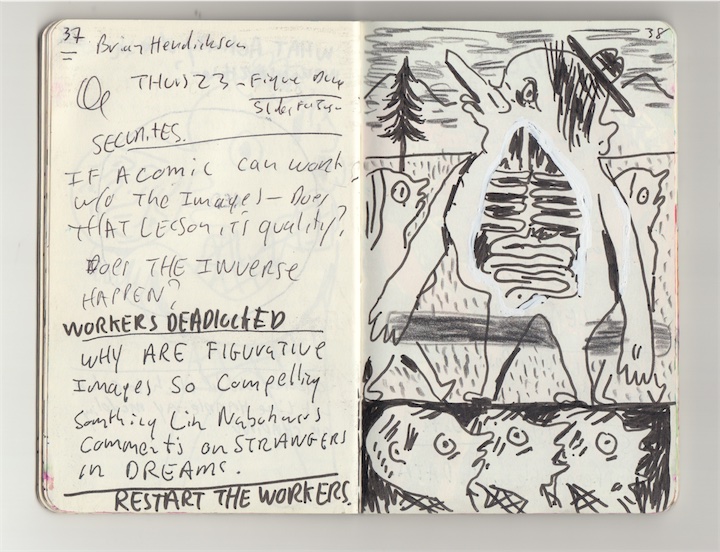 37
Brian Hendrickson
THURS 23 - Figure Draw
SECURITES.
IF A comic can work
w/o The Images — Does
tHAT LESSON it's quality?
Does THE INVERSE
HAPPEN?
WORKERS DEADLOCKED
WHY ARE FIGURATIVE
Images So Compelling
Somthing Lik Nabokovs
Comments on STRANGERS
in DREAMS.
RESTART THE WORKERS.
38